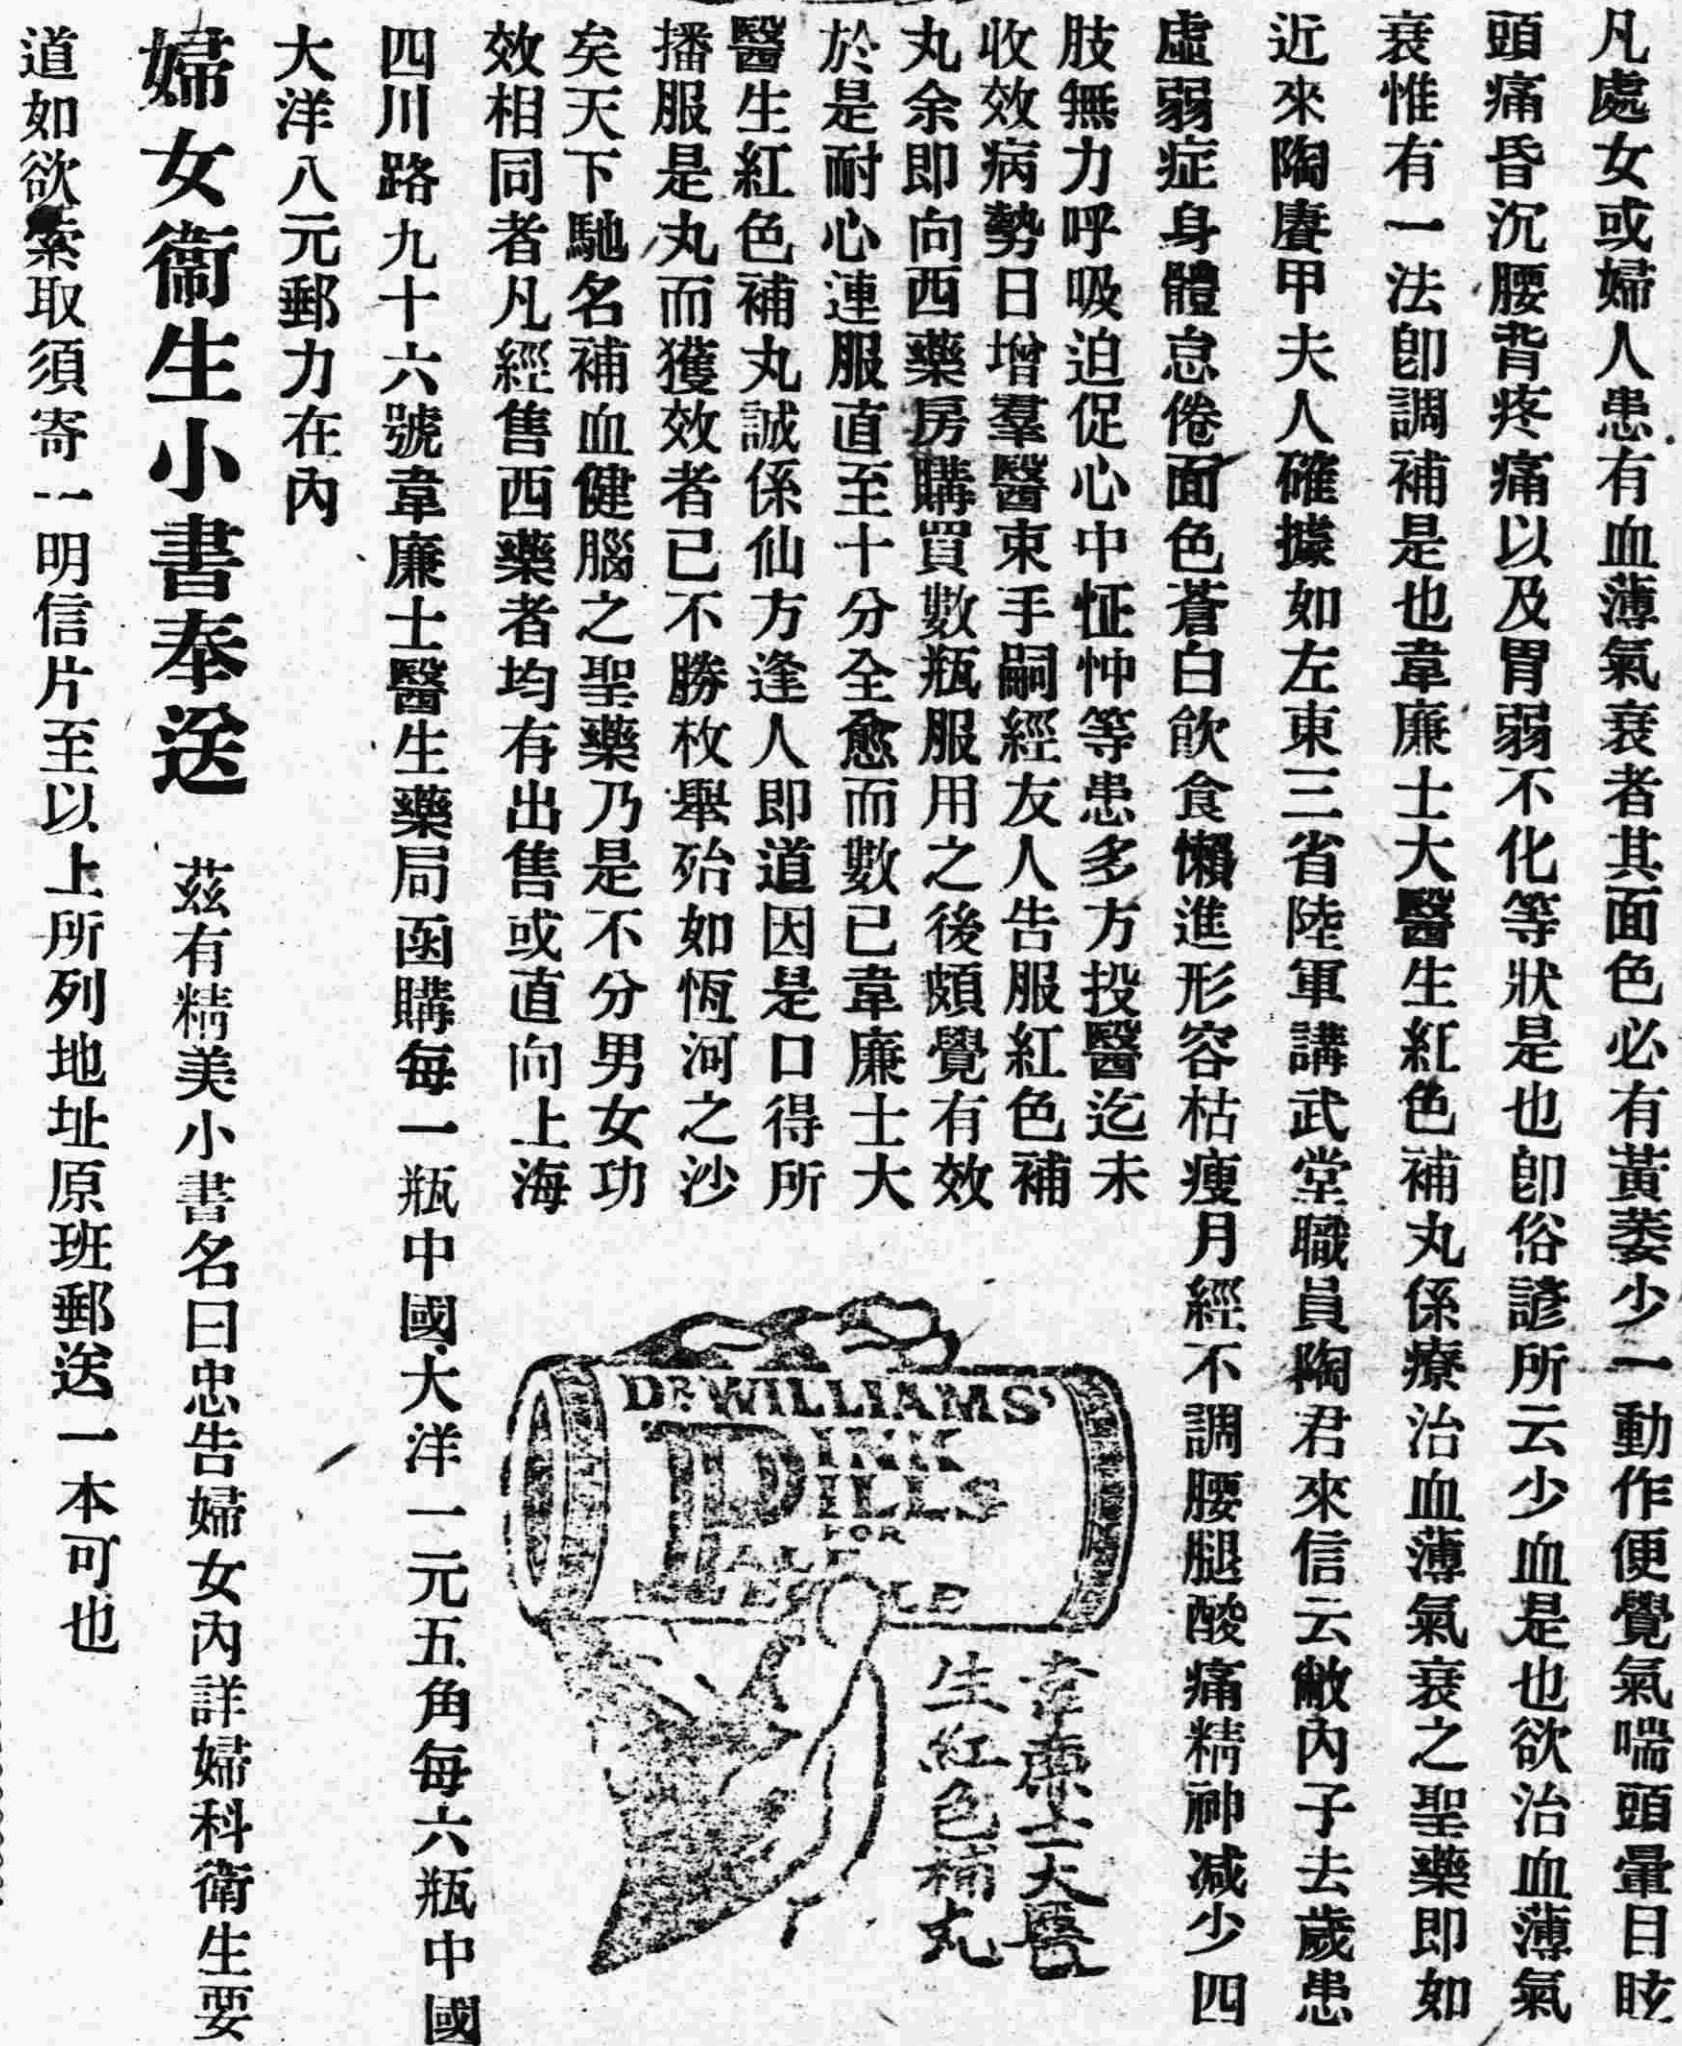 凡處女或婦人患有血薄氣衰者其面色必有黃萎少一動作便覺氣喘頭暈目眩
頭痛昏沉腰背疼痛以及胃弱不化等狀是也卽俗諺所云少血是也欲治血薄氣
衰惟有一法卽調補是也韋廉士大醫生紅色補丸係療治血薄氣衰之聖藥卽如
近來陶賡甲夫人確據如左東三省陸軍講武堂職員陶君來信云敝內子去歲患
虛弱症身體怠倦面色蒼白飲食懶進形容枯瘦月經不調腰腿酸痛精神减少四
肢無力呼吸迫促心中怔忡等患多方投醫迄未
收效病勢日增羣醫束手嗣經友人告服紅色補
丸余即向西藥房購買數瓶服用之後頗覺有效
於是耐心連服直至十分全愈而數已韋廉士大
醫生紅色補丸誠係仙方逢人即道因是口得所
播服是丸而獲效者已不勝枚舉殆如恆河之沙
矣天下馳名補血健腦之聖藥乃是不分男女功
效相同者凡經售西藥者均有出售或直向上海
四川路九十六號韋廉士醫生藥局函購每一瓶中國大洋一元五角每六瓶中國
大洋八元郵力在內
婦女衞生小書奉送 茲有精美小書名曰忠告婦女內詳婦科衛生要
道如欲索取須寄一明信片至以上所列地址原班郵送一本可也
DR WILLIAMS'
PINK
PILLS
FOR
PALE
PEOPLE
韋廉士大醫
生紅色補丸